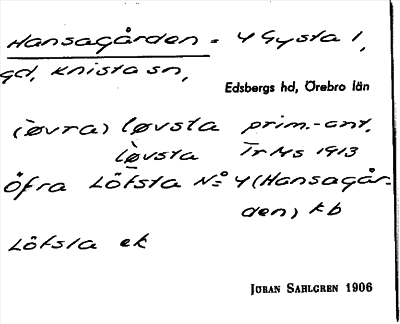 Hansagården = 4 Gysta 1,
gd, Knista sn,
Edsbergs hd, Örebro län
(ìøvra) løvsta prim.-ant.
løvsta TrMs 1913
Öfra Löfsta No 4 (Hansagår-
den) kb
Löfsta ek
JÖRAN SAHLGREN 1906